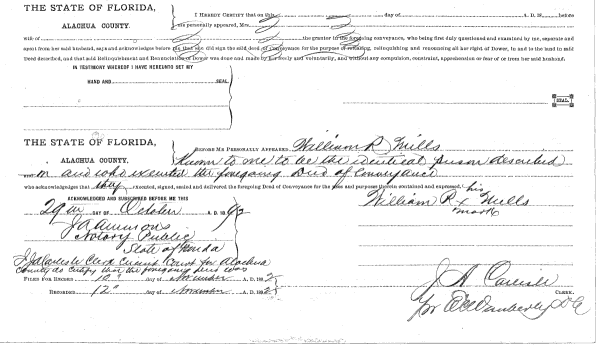 THE STATE OF FLORIDA,
ALACHUA COUNTY.
I HEREBY CERTIFY that on this day of A. D. 18 before
me personally appeared, Mrs.
wife of the grantor in the foregoing conveyance, who being first duly questioned and examined by me, separate and
apart from her said husband, says and acknowledges before me that she did sign the said deed of conveyance for the purpose of relinquishing and renouncing all her right of Dower, in and to the land in said
Deed described, and that said Relinquishment and Renunciation of Dower was done and made by her freely and voluntarily, and without any compulsion, constraint, apprehension or fear of or from her said husband.
IN TESTIMONY WHEREOF I HAVE HEREUNTO SET MY
HAND AND SEAL.
SEAL.
THE STATE OF FLORIDA,
ALACHUA COUNTY.
BEFORE ME PERSONALLY APPEARED William R Mills
Known to me to be the identical person described
in and who executed the foregoing Deed of Conveyance
who acknowledges that they executed, signed, sealed and delivered the foregoing Deed of Conveyance for the uses and purposes therein contained and expressed.
ACKNOWLEDGED AND SUBSCRIBED BEFORE ME THIS
his
William R x Mills
mark
29th DAY OF October A. D. 1892
J A Ammons
Notary Public
State of Florida
I, J A Carlisle Clerk Circuit Court for Alachua
County do certify that the foregoing deed was
FILED FOR RECORD 10" day of November A. D. 1892
RECORDED 12" day of November A. D. 1892
J A Carlisle
CLERK.
for D C